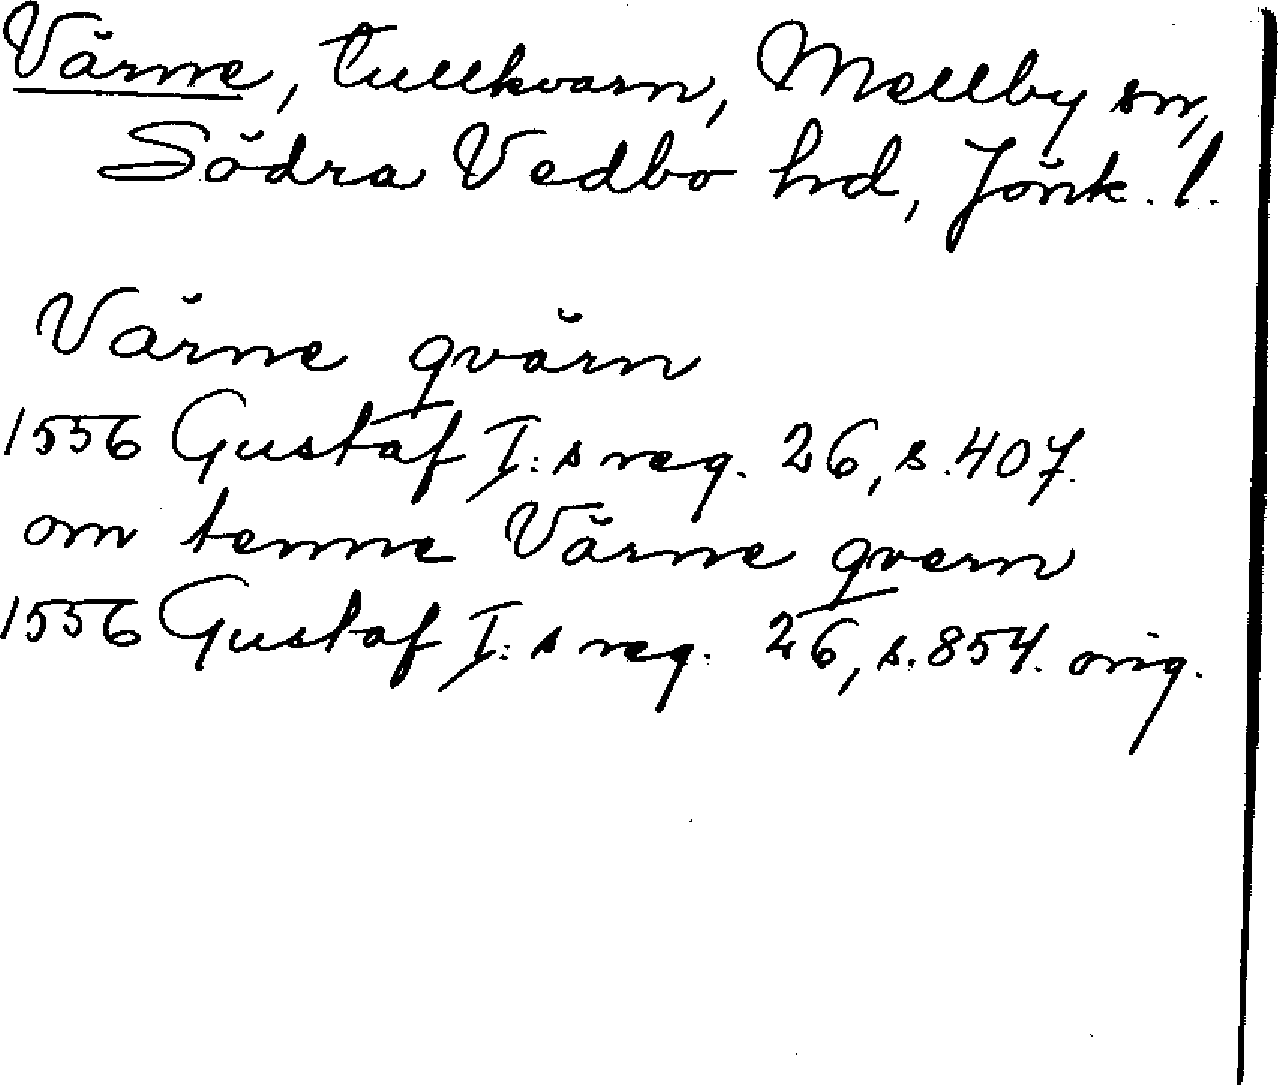 Värne, tullkvarn, Mellby sn,
Södra Vedbo hd, Jönk. l.
Värne qvärn
1556 Gustaf I:s reg. 26, s. 407.
om tenne Värne qvern
1556 Gustaf I:s reg. 26, s. 854. orig.